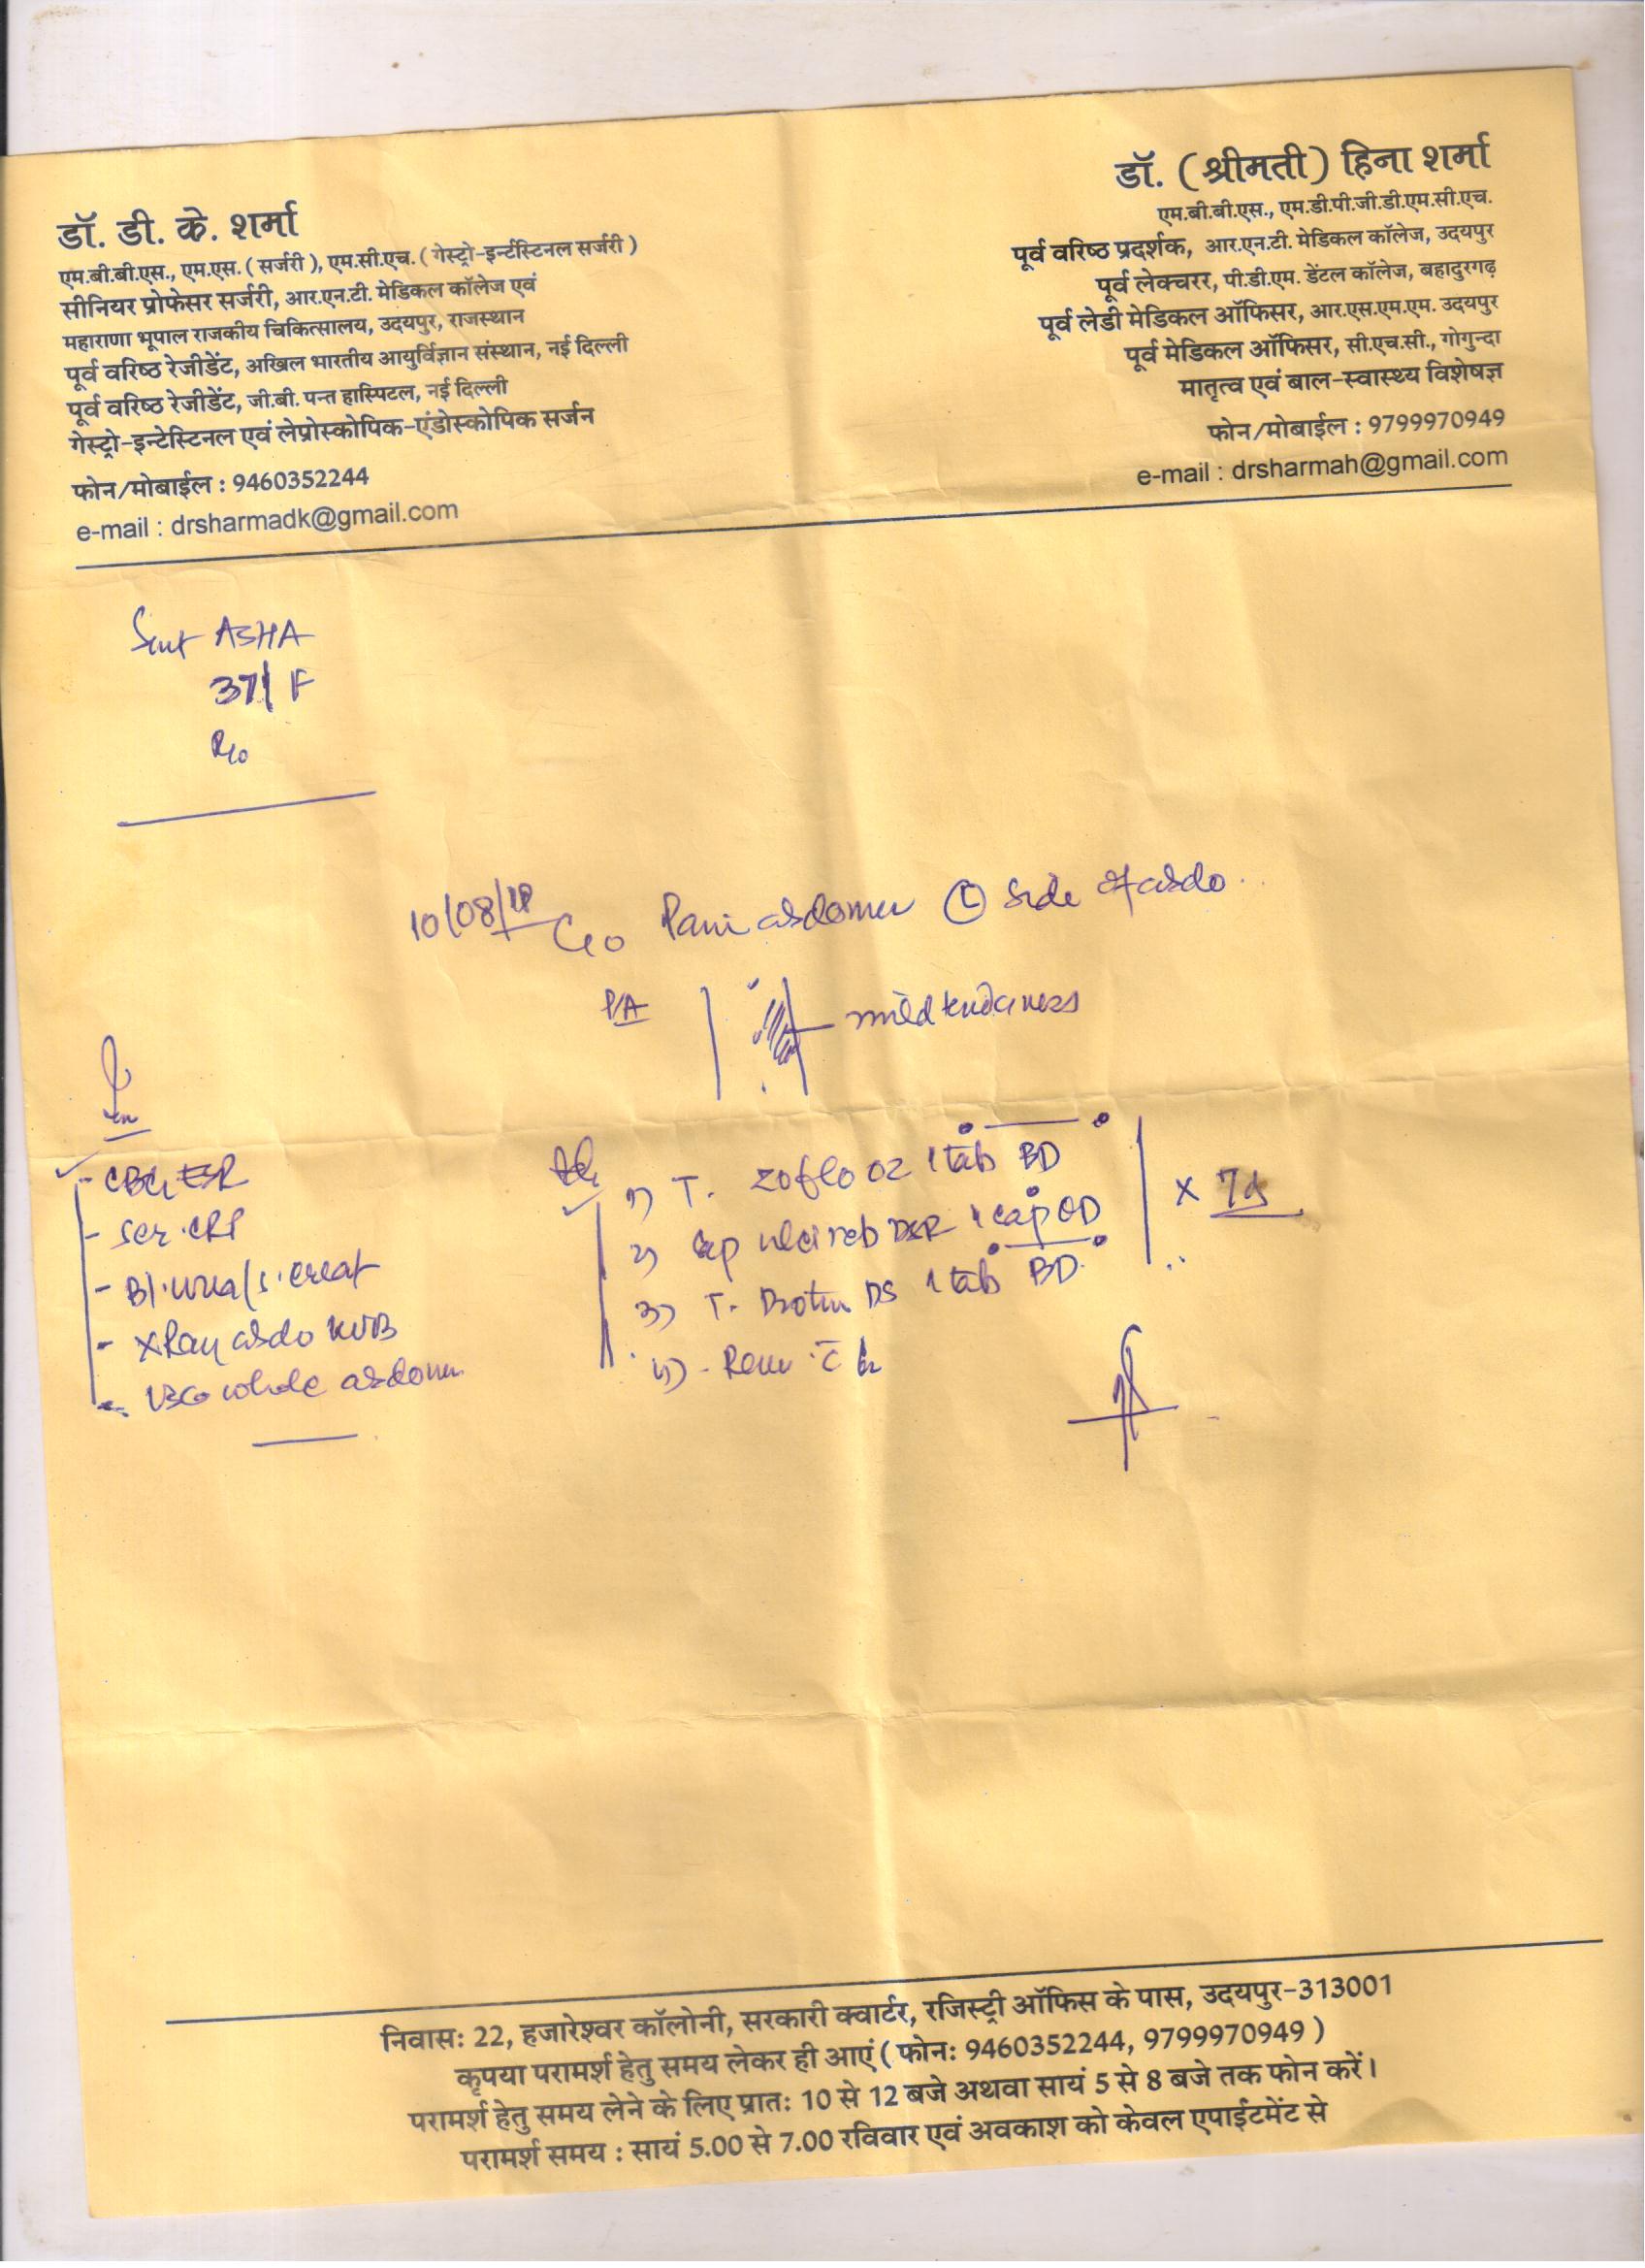 डॉ. डी. के. शर्मा
एम.बी.बी.एस., एम.एस. ( सर्जरी ), एम.सी.एच. ( गेस्ट्रो-इन्टेंस्टिनल सर्जरी )
सीनियर प्रोफेसर सर्जरी, आर.एन.टी. मेडिकल कॉलेज एवं
महाराणा भूपाल राजकीय चिकित्सालय, उदयपुर, राजस्थान
पूर्व वरिष्ठ रेजीडेंट, अखिल भारतीय आयुर्विज्ञान संस्थान, नई दिल्ली
पूर्व वरिष्ठ रेजीडेंट, जी.बी. पन्त हास्पिटल, नई दिल्ली
गेस्ट्रो-इन्टेस्टिनल एवं लेप्रोस्कोपिक-एंडोस्कोपिक सर्जन
फोन/मोबाईल : 9460352244
e-mail : drsharmadk@gmail.com
डॉ. ( श्रीमती ) हिना शर्मा
एम.बी.बी.एस., एम.डी.पी.जी.डी.एम.सी.एच.
पूर्व वरिष्ठ प्रदर्शक, आर.एन.टी. मेडिकल कॉलेज, उदयपुर
पूर्व लेक्चरर, पी.डी.एम. डेंटल कॉलेज, बहादुरगढ़
पूर्व लेडी मेडिकल ऑफिसर, आर.एस.एम.एम. उदयपुर
पूर्व मेडिकल ऑफिसर, सी.एच.सी., गोगुन्दा
मातृत्व एवं बाल-स्वास्थ्य विशेषज्ञ
फोन/मोबाईल : 9799970949
e-mail : drsharmah@gmail.com
Smt ASHA
37/F
R/o
10/08/18 C/o Pain abdomen Ⓛ side of abdo
P/A mild tenderness
- CBC, ESR
- Ser. CRP
- Bl. urea/s. creat
- XRay abdo KUB
- USG whole abdomen
1) T. zoflo oz 1 tab BD
2) Cap DSR 1 cap OD
3) T. DS 1 tab BD
x 7d
4) - Rev c̄
निवास: 22, हजारेश्वर कॉलोनी, सरकारी क्वार्टर, रजिस्ट्री ऑफिस के पास, उदयपुर-313001
कृपया परामर्श हेतु समय लेकर ही आएं ( फोन: 9460352244, 9799970949 )
परामर्श हेतु समय लेने के लिए प्रात: 10 से 12 बजे अथवा सायं 5 से 8 बजे तक फोन करें।
परामर्श समय : सायं 5.00 से 7.00 रविवार एवं अवकाश को केवल एपाईटमेंट से